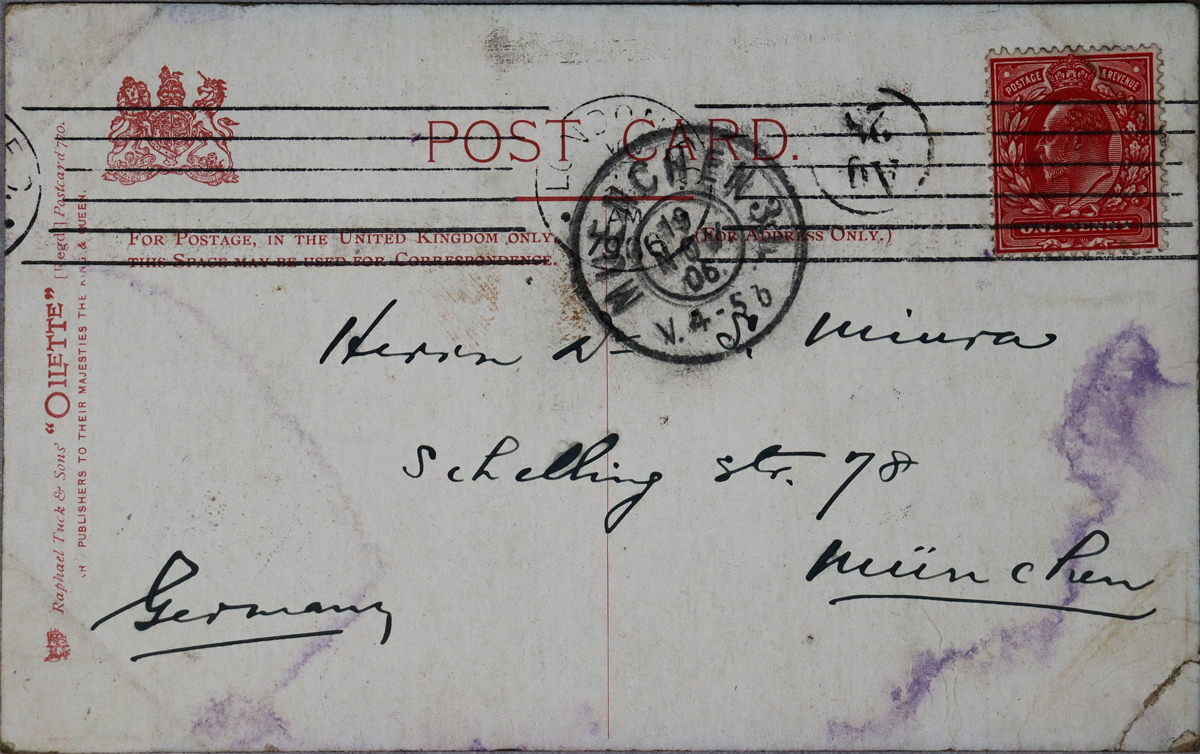 POSTAGE & REVENUE
ONE PENNY
POST CARD.
FOR POSTAGE, IN THE UNITED KINGDOM ONLY,
THIS SPACE MAY BE USED FOR CORRESPONDENCE.
(FOR ADDRESS ONLY.)
LONDON
MUENCHEN
19
06
V. 4-5
Herrn Dr S. Miura
Schelling str. 78
München
Germany
Raphael Tuck & Sons' "OILETTE" [Regd.] Postcard 770.
PUBLISHERS TO THEIR MAJESTIES THE KING & QUEEN.